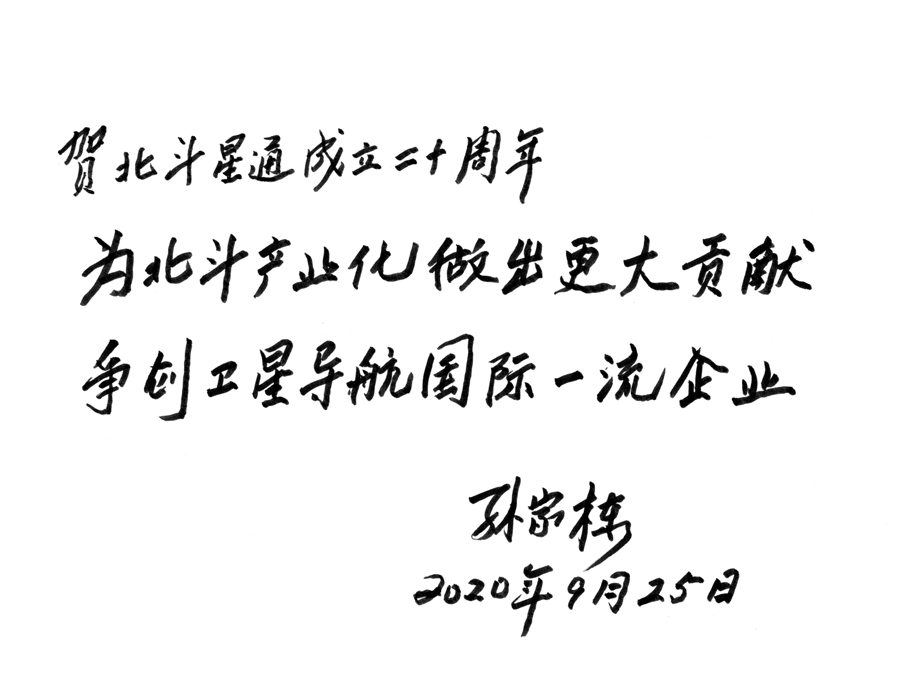 贺北斗星通成立二十周年
为北斗产业化做出更大贡献
争创卫星导航国际一流企业
孙家栋
2020年9月25日